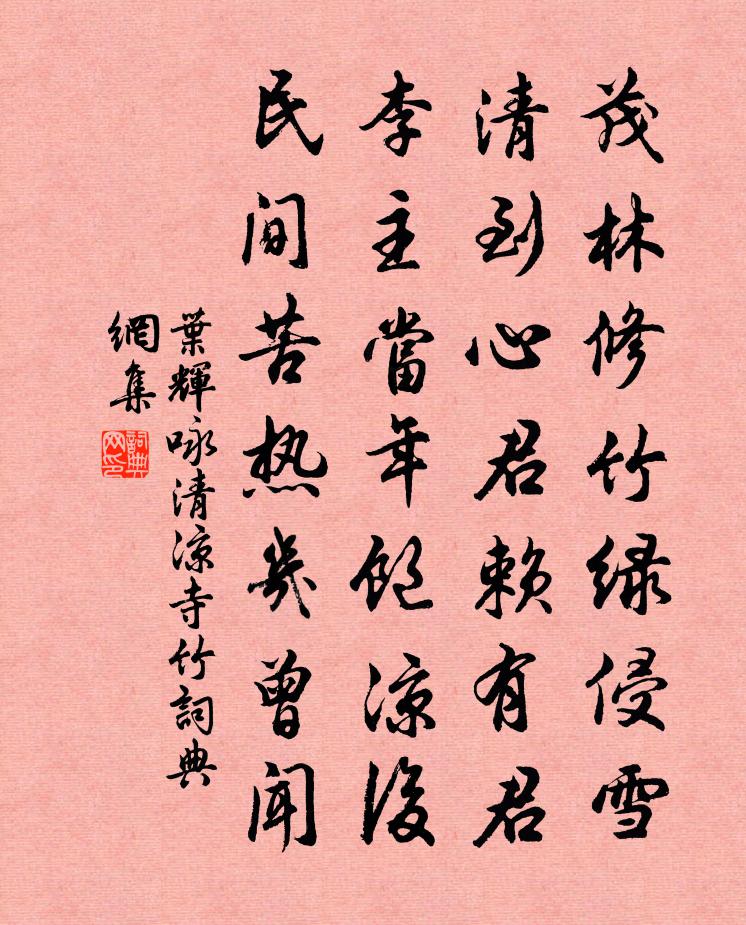 茂林修竹绿侵雪
清到心君赖有君
李主當年飽凉後
民间苦热幾曾闻
葉輝咏清凉寺竹詞典
網集
詞典
网印